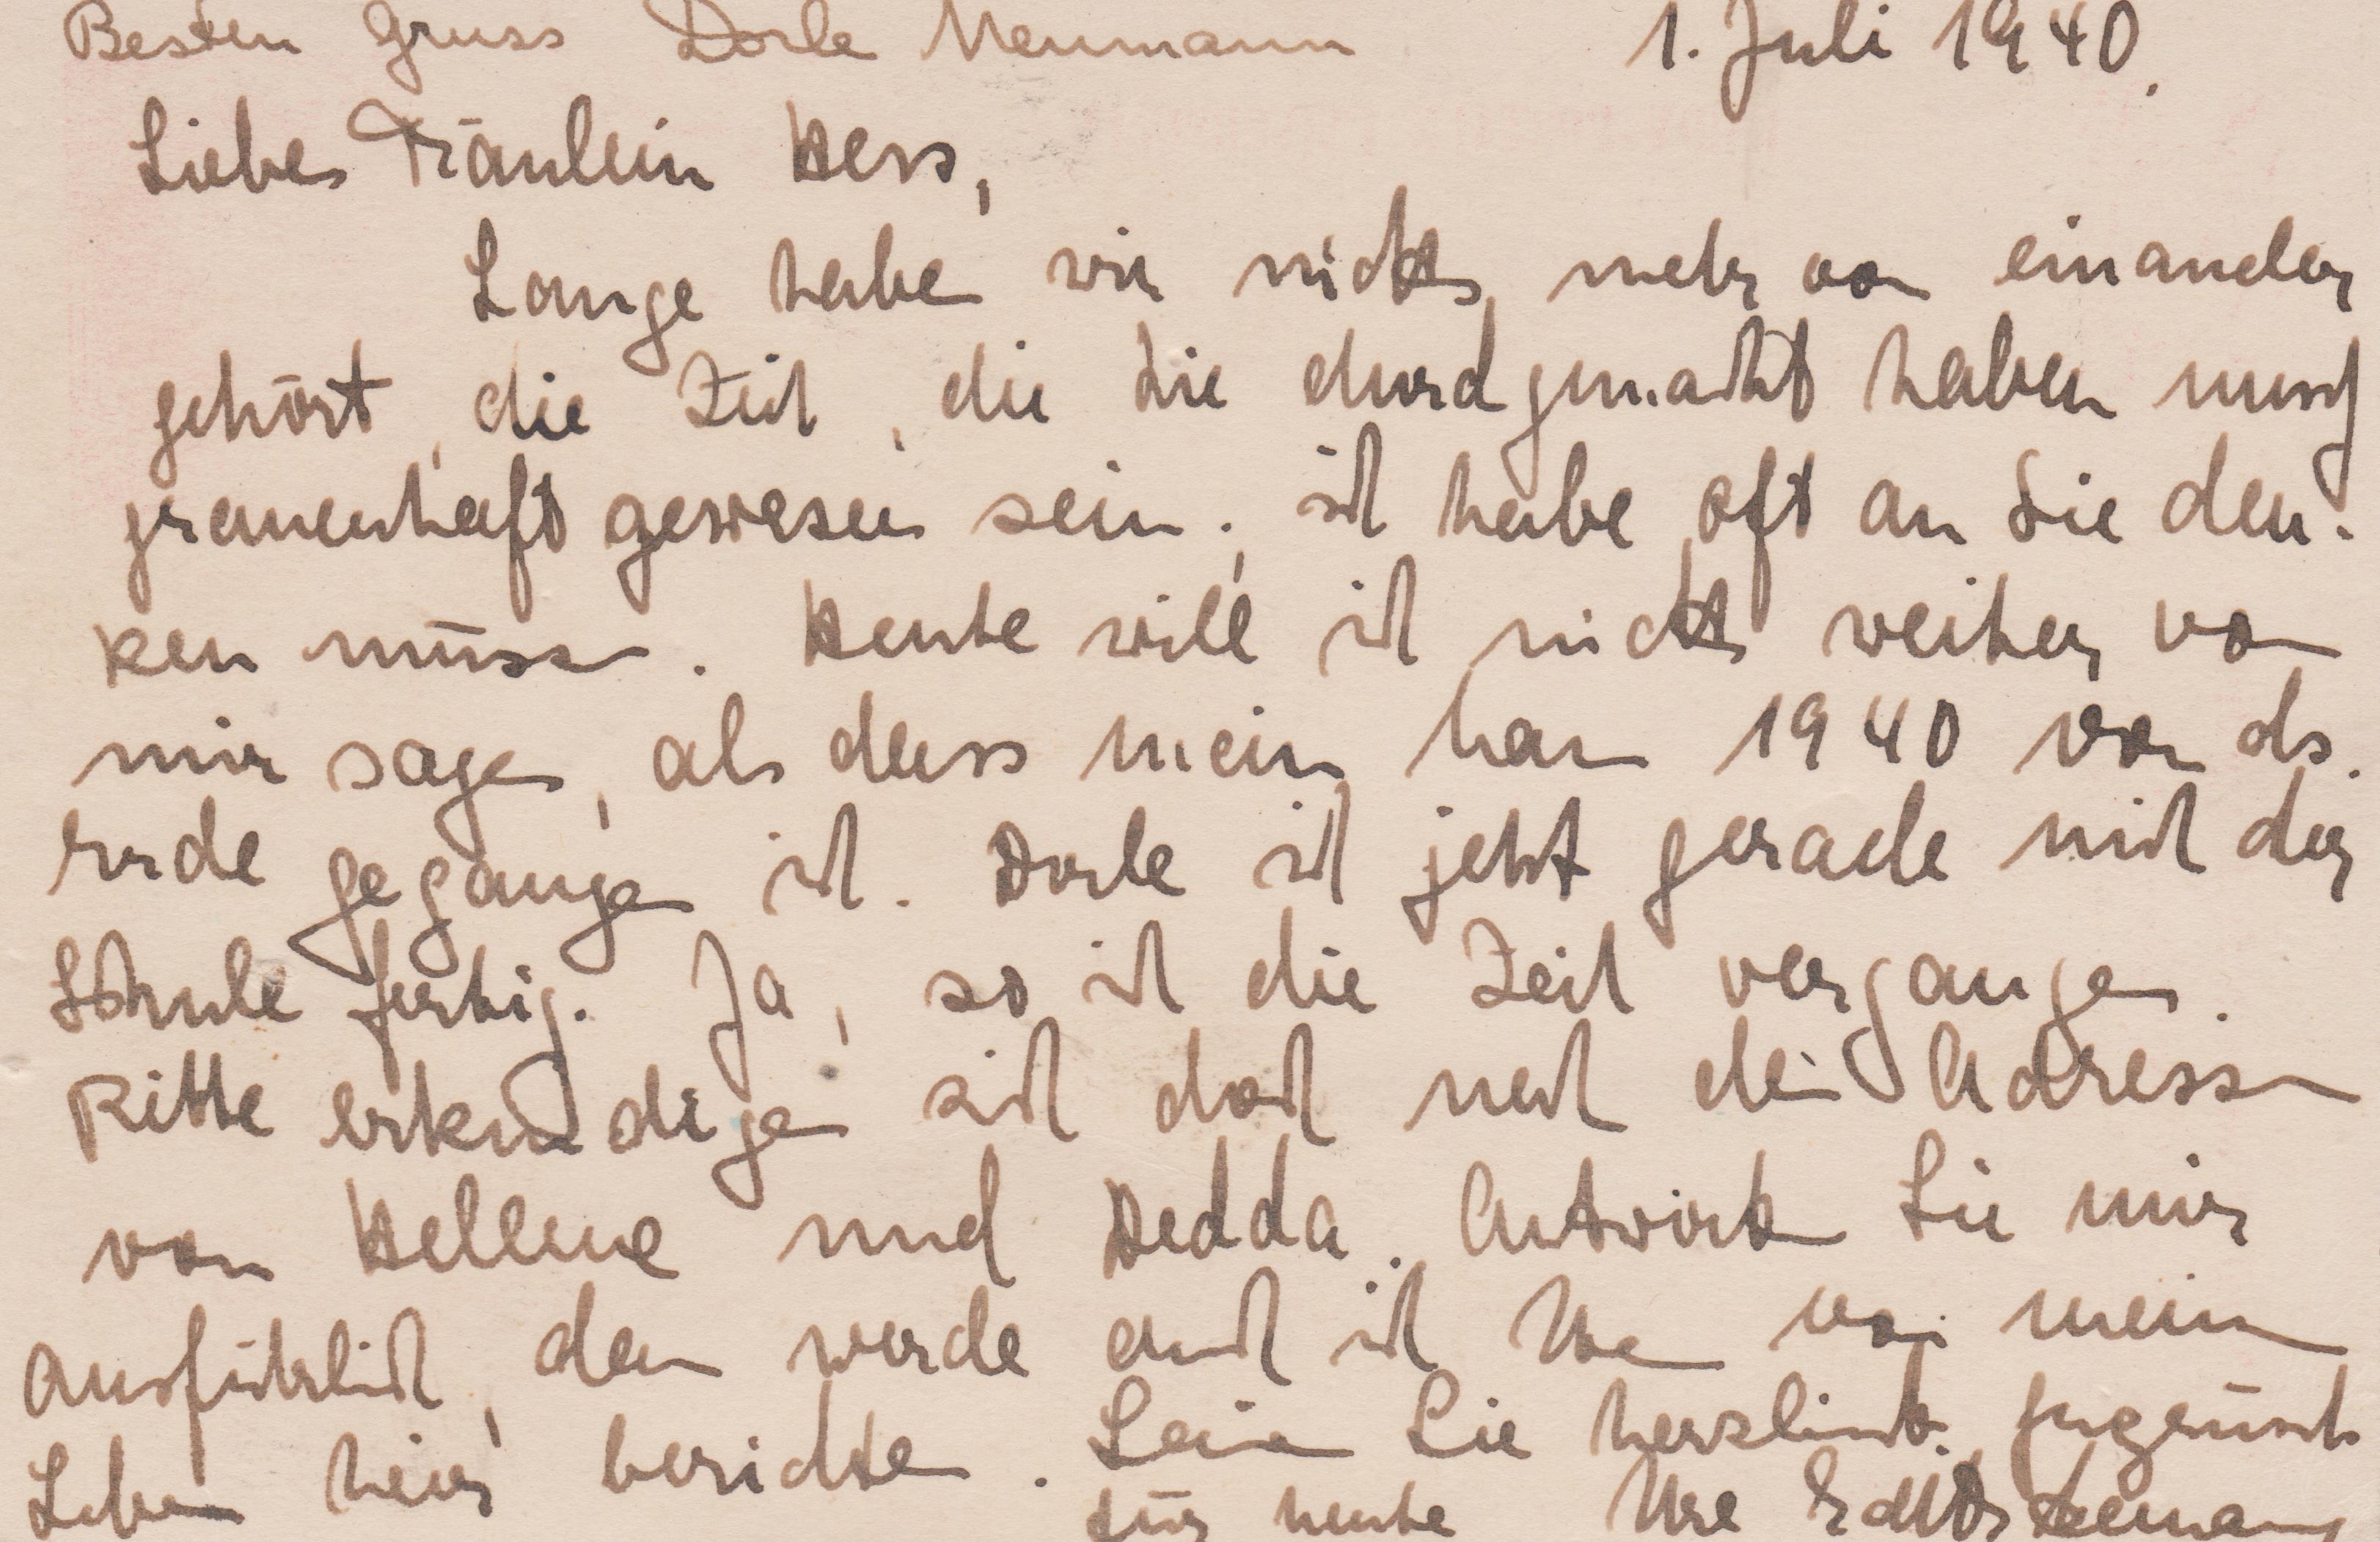 Besten Gruss Dorle Neumann 1. Juli 1940.
Liebes Fräulein Hess,
Lange haben wir nichts mehr von einander
gehört, die Zeit, die Sie durchgemacht haben muss
grauenhaft gewesen sein; ich habe oft an Sie den-
ken müssen. Heute will ich nichts weiter von
mir sagen, als dass mein Mann 1940 von ds.
Erde gegangen ist. Dorle ist jetzt gerade mit der
Schule fertig. Ja, so ist die Zeit vergangen.
Bitte erkundigen sich doch nach den Adressen
von Hellene und Hedda. Antworten Sie mir
ausführlich, dann werde auch ich Ihnen von meinem
Leben hier berichten. Seien Sie herzlichst gegrüsst
für heute Ihre Edith Neumann